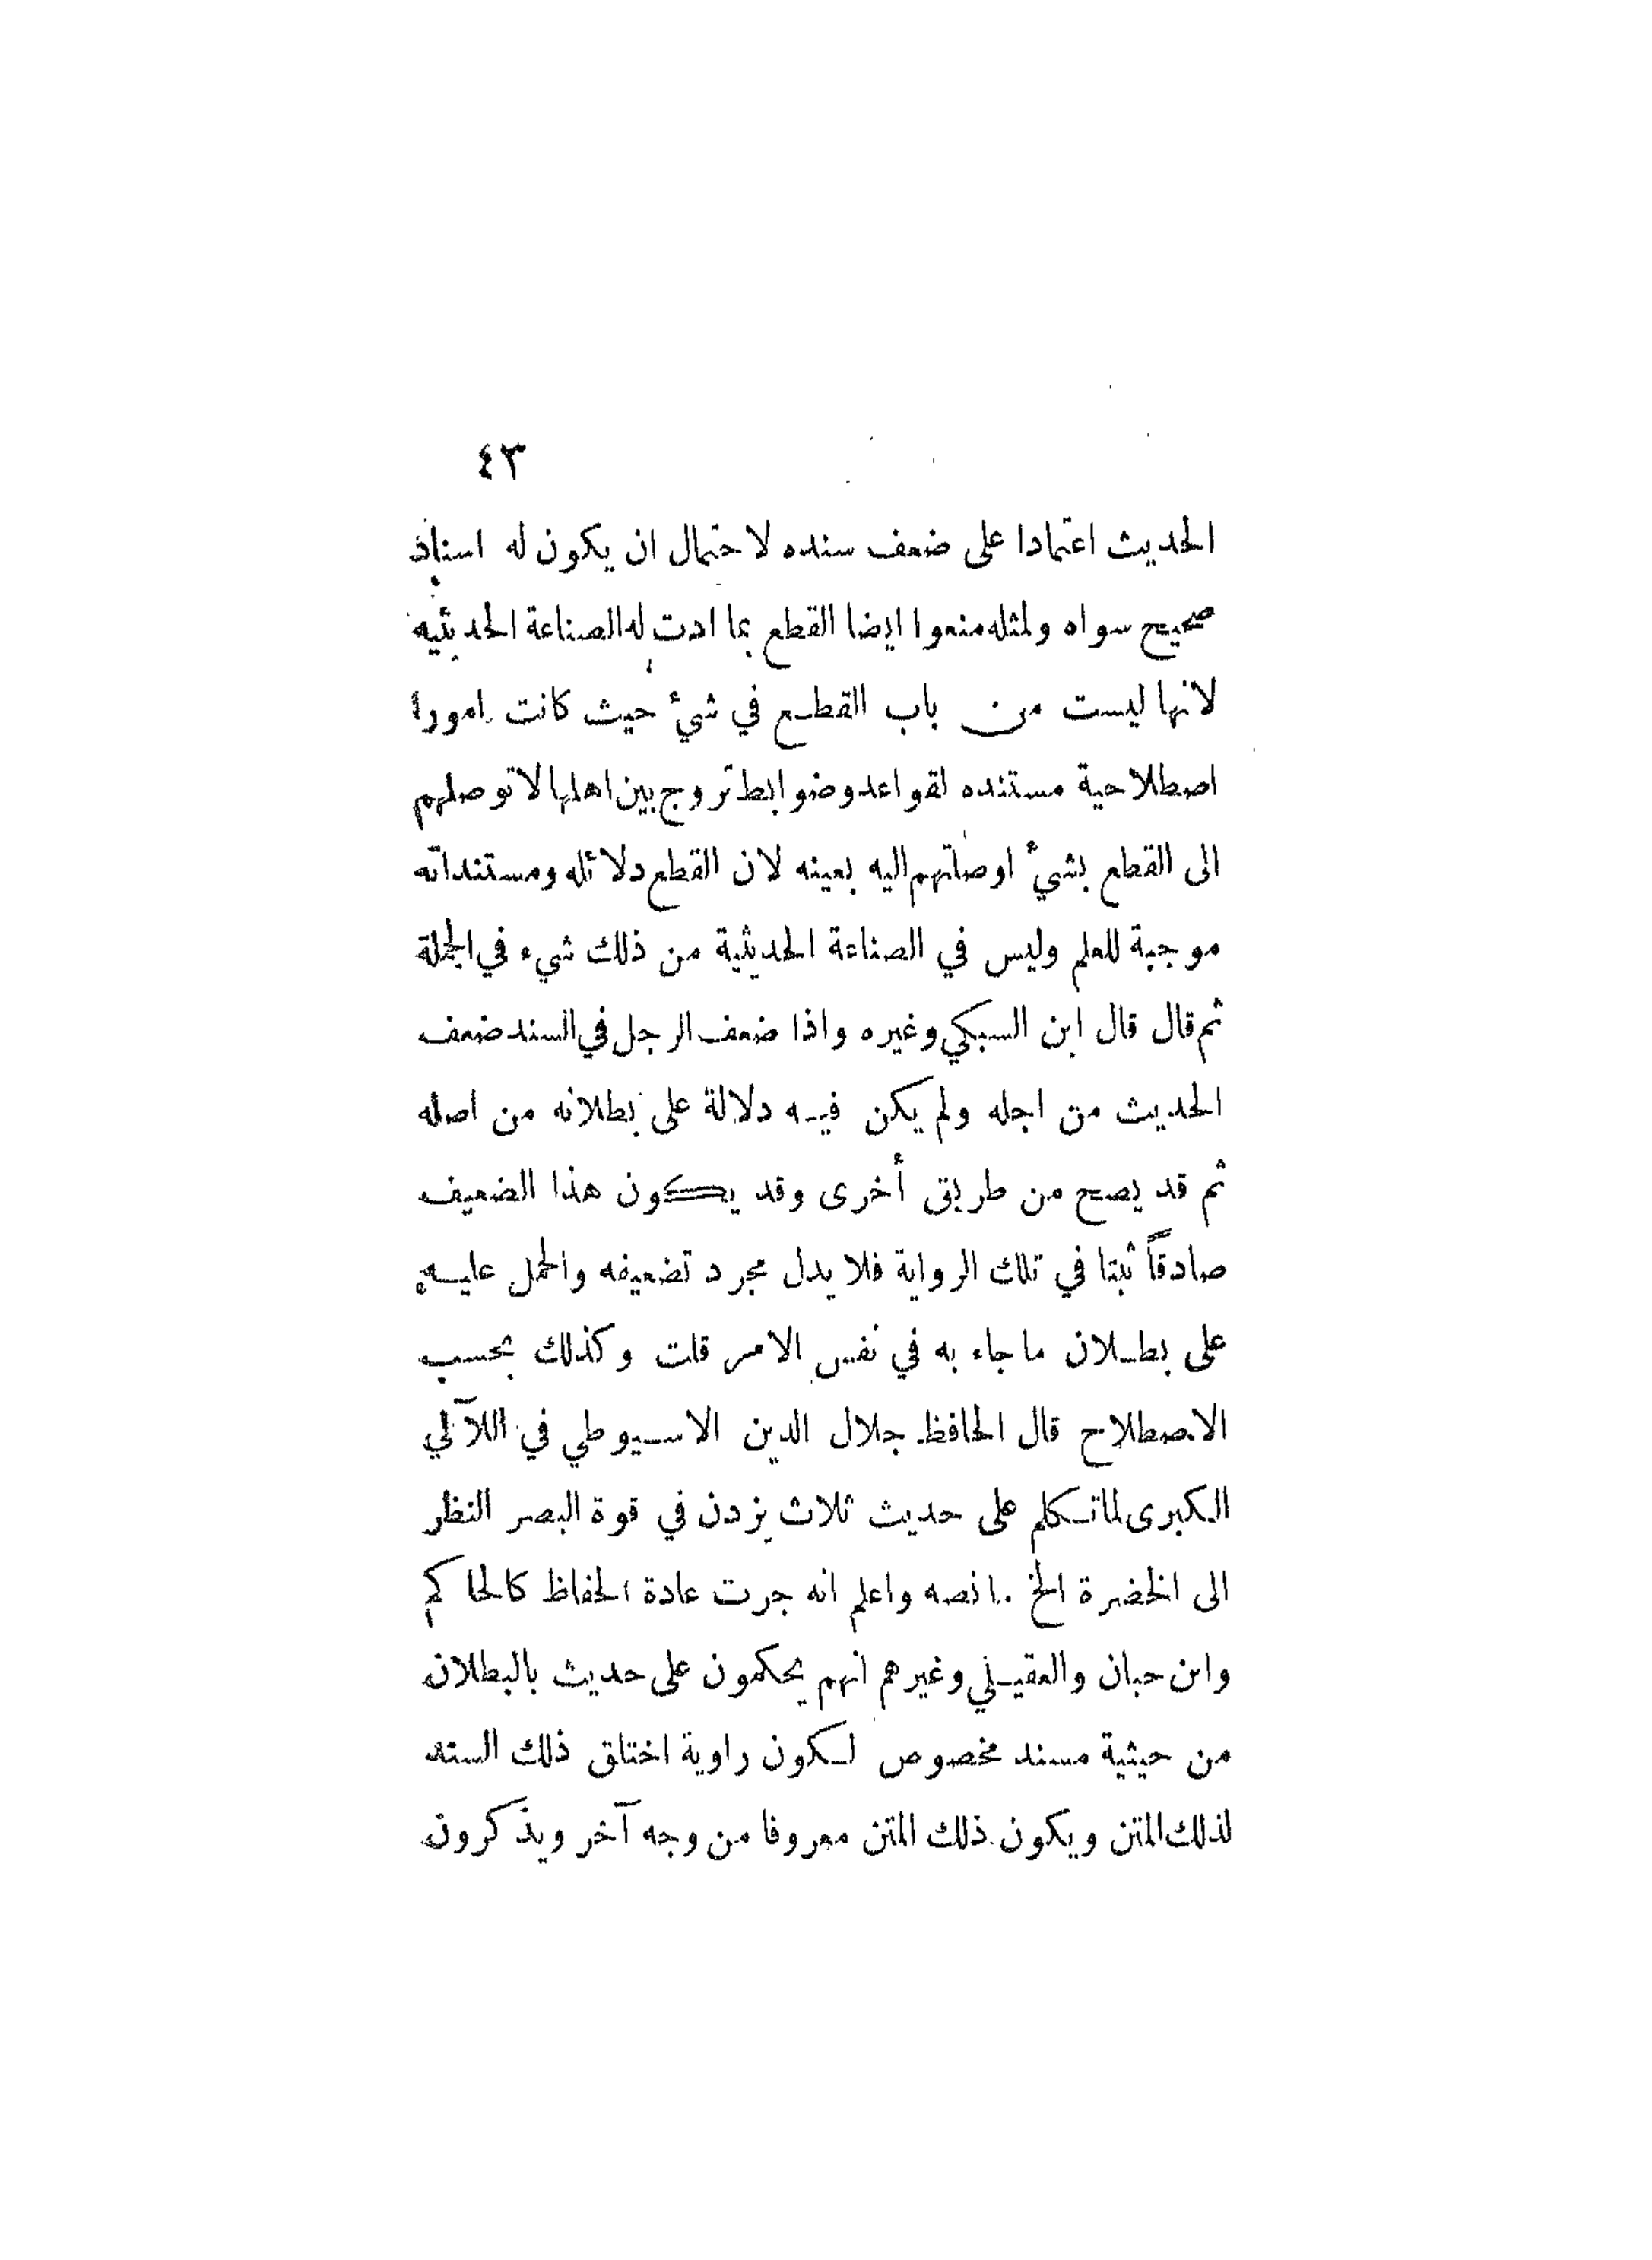 ٤٣
الحديث اعتمادا على ضعف سنده لاحتمال ان يكون له اسناد
صحيح سواه ولمثله منعوا ايضا القطع بما ادت له الصناعة الحديثيه
لانها ليست من باب القطع في شيء حيث كانت امورا
اصطلاحية مستنده لقواعد وضوابط تروج بين اهلها لا توصلهم
الى القطع بشيء اوصلتهم اليه بعينه لان القطع دلائله ومستنداته
موجبة للعلم وليس في الصناعة الحديثية من ذلك شيء في الجملة
ثم قال قال ابن السبكي وغيره واذا ضعف الرجل في السند ضعف
الحديث من اجله ولم يكن فيه دلالة على بطلانه من اصله
ثم قد يصح من طريق أخرى وقد يكون هذا الضعيف
صادقاً ثبتا في تلك الرواية فلا يدل مجرد تضعيفه والحمل عليه
على بطلان ما جاء به في نفس الامر قلت وكذلك بحسب
الاصطلاح قال الحافظ جلال الدين الاسيوطي في اللآلي
الكبرى لما تكلم على حديث ثلاث يزدن في قوة البصر النظر
الى الخضرة الخ ما نصه واعلم انه جرت عادة الحفاظ كالحاكم
وابن حبان والعقيلي وغيرهم انهم يحكمون على حديث بالبطلان
من حيثية مسند مخصوص لكون راوية اختلق ذلك السند
لذلك المتن ويكون ذلك المتن معروفا من وجه آخر ويذكرون